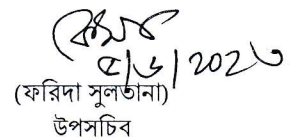 ৫/৬/২০২৩
(ফরিদা সুলতানা)
উপসচিব